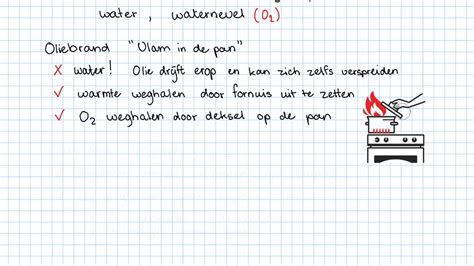 water, waternevel (O₂)
Oliebrand "Vlam in de pan"
X water! Olie drijft erop en kan zich zelfs verspreiden
✓ warmte weghalen door fornuis uit te zetten
✓ O₂ weghalen door deksel op de pan